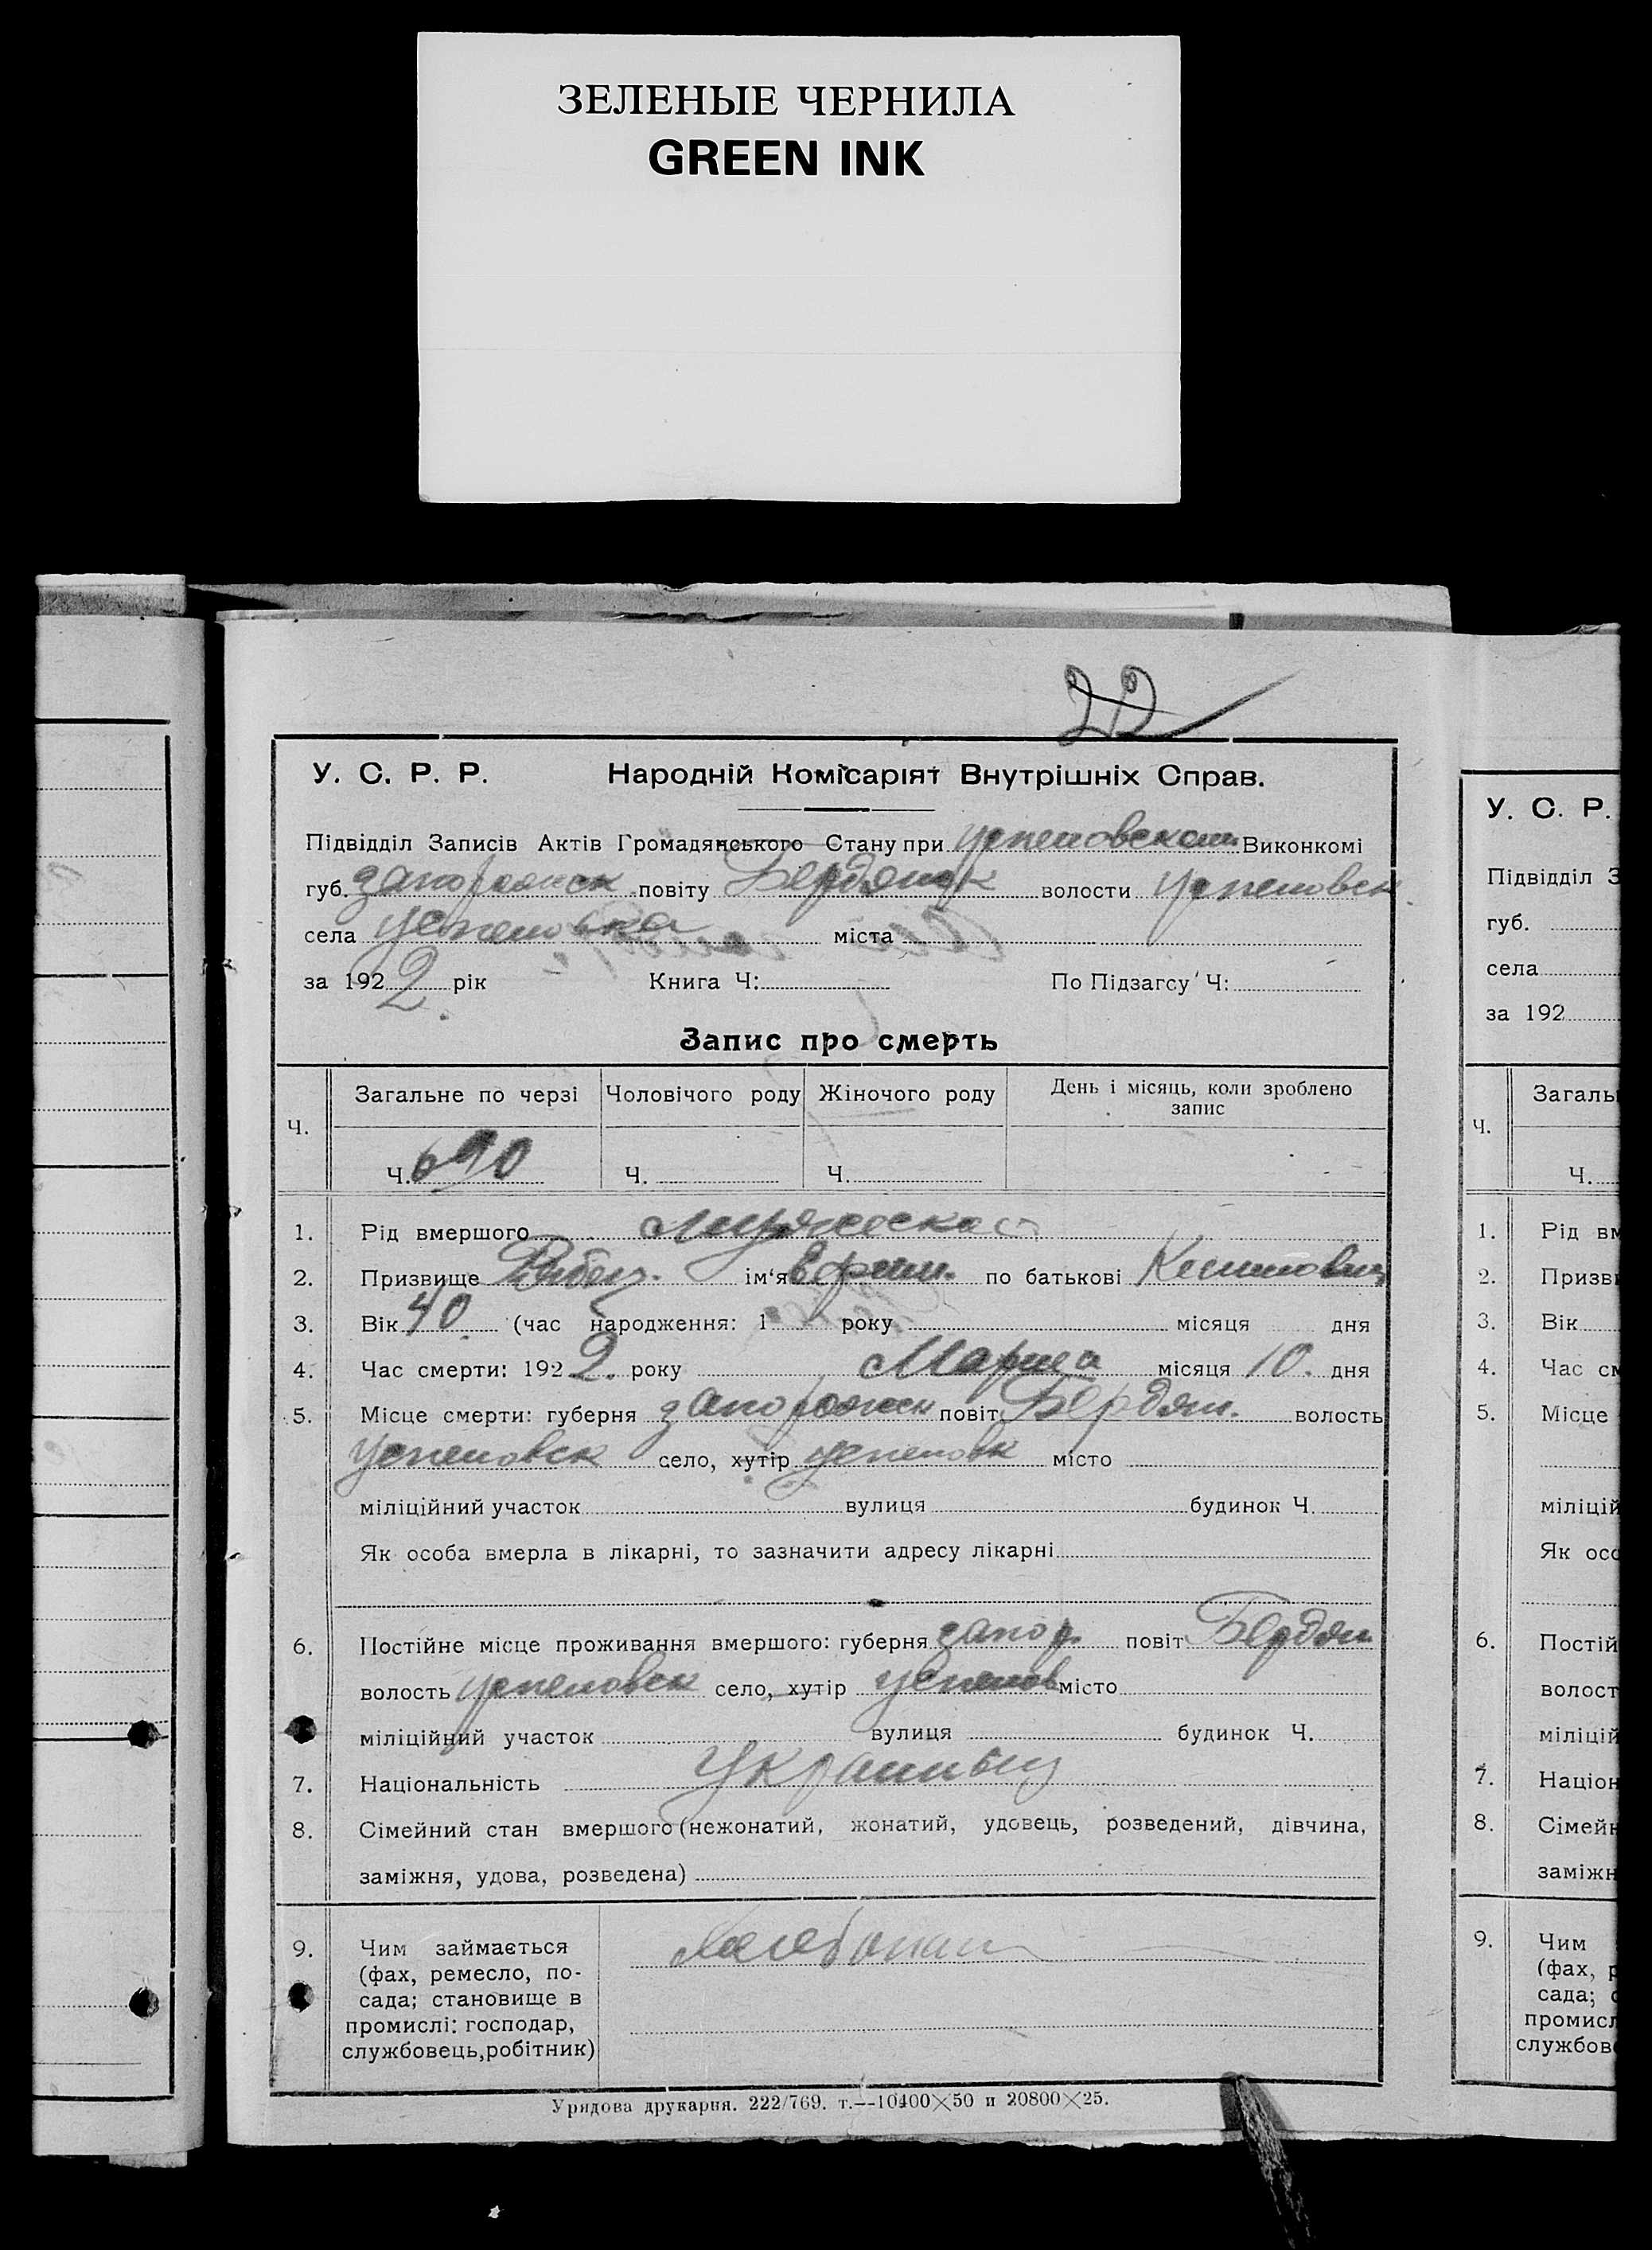 ЗЕЛЕНЫЕ ЧЕРНИЛА
GREEN INK
22
У. С. Р. Р. Народній Комісаріят Внутрішніх Справ.
Підвідділ Записів Актів Громадянського Стану при Успеновском Виконкомі
губ. Запорожск повіту Бердянск волости Успеновск
села Успеновка міста
за 1922 рік Книга Ч: По Підзагсу Ч:
Запис про смерть
Ч. Загальне по черзі Чоловічого роду Жіночого роду День і місяць, коли зроблено запис
Ч. 690 Ч. Ч.
1. Рід вмершого Мужеска
2. Призвище ім‘я по батькові
3. Вік 40 (час народження: 1 року місяця дня
4. Час смерти: 1922. року Марта місяця 10. дня
5. Місце смерти: губерня Запорожск повіт Бердян. волость
Успеновск село, хутір Успеновк місто
міліційний участок вулиця будинок Ч.
Як особа вмерла в лікарні, то зазначити адресу лікарні
6. Постійне місце проживання вмершого: губерня Запор. повіт Бердян
волость Успеновск село, хутір Успенов місто
міліційний участок вулиця будинок Ч.
7. Національність
8. Сімейний стан вмершого (нежонатий, жонатий, удовець, розведений, дівчина,
заміжня, удова, розведена)
9. Чим займається
(фах, ремесло, по-
сада; становище в
промислі: господар,
службовець,робітник)
Урядова друкарня. 222/769. т.—10400×50 и 20800×25.
У. С. Р.
Підвідділ З
губ.
села
за 192
Загаль
Ч.
Ч.
1. Рід вм
2. Призви
3. Вік
4. Час см
5. Місце
міліцій
Як осо
6. Постій
волост
міліцій
7. Націон
8. Сімейн
заміжн
9. Чим
(фах, р
сада; с
промисл
службов